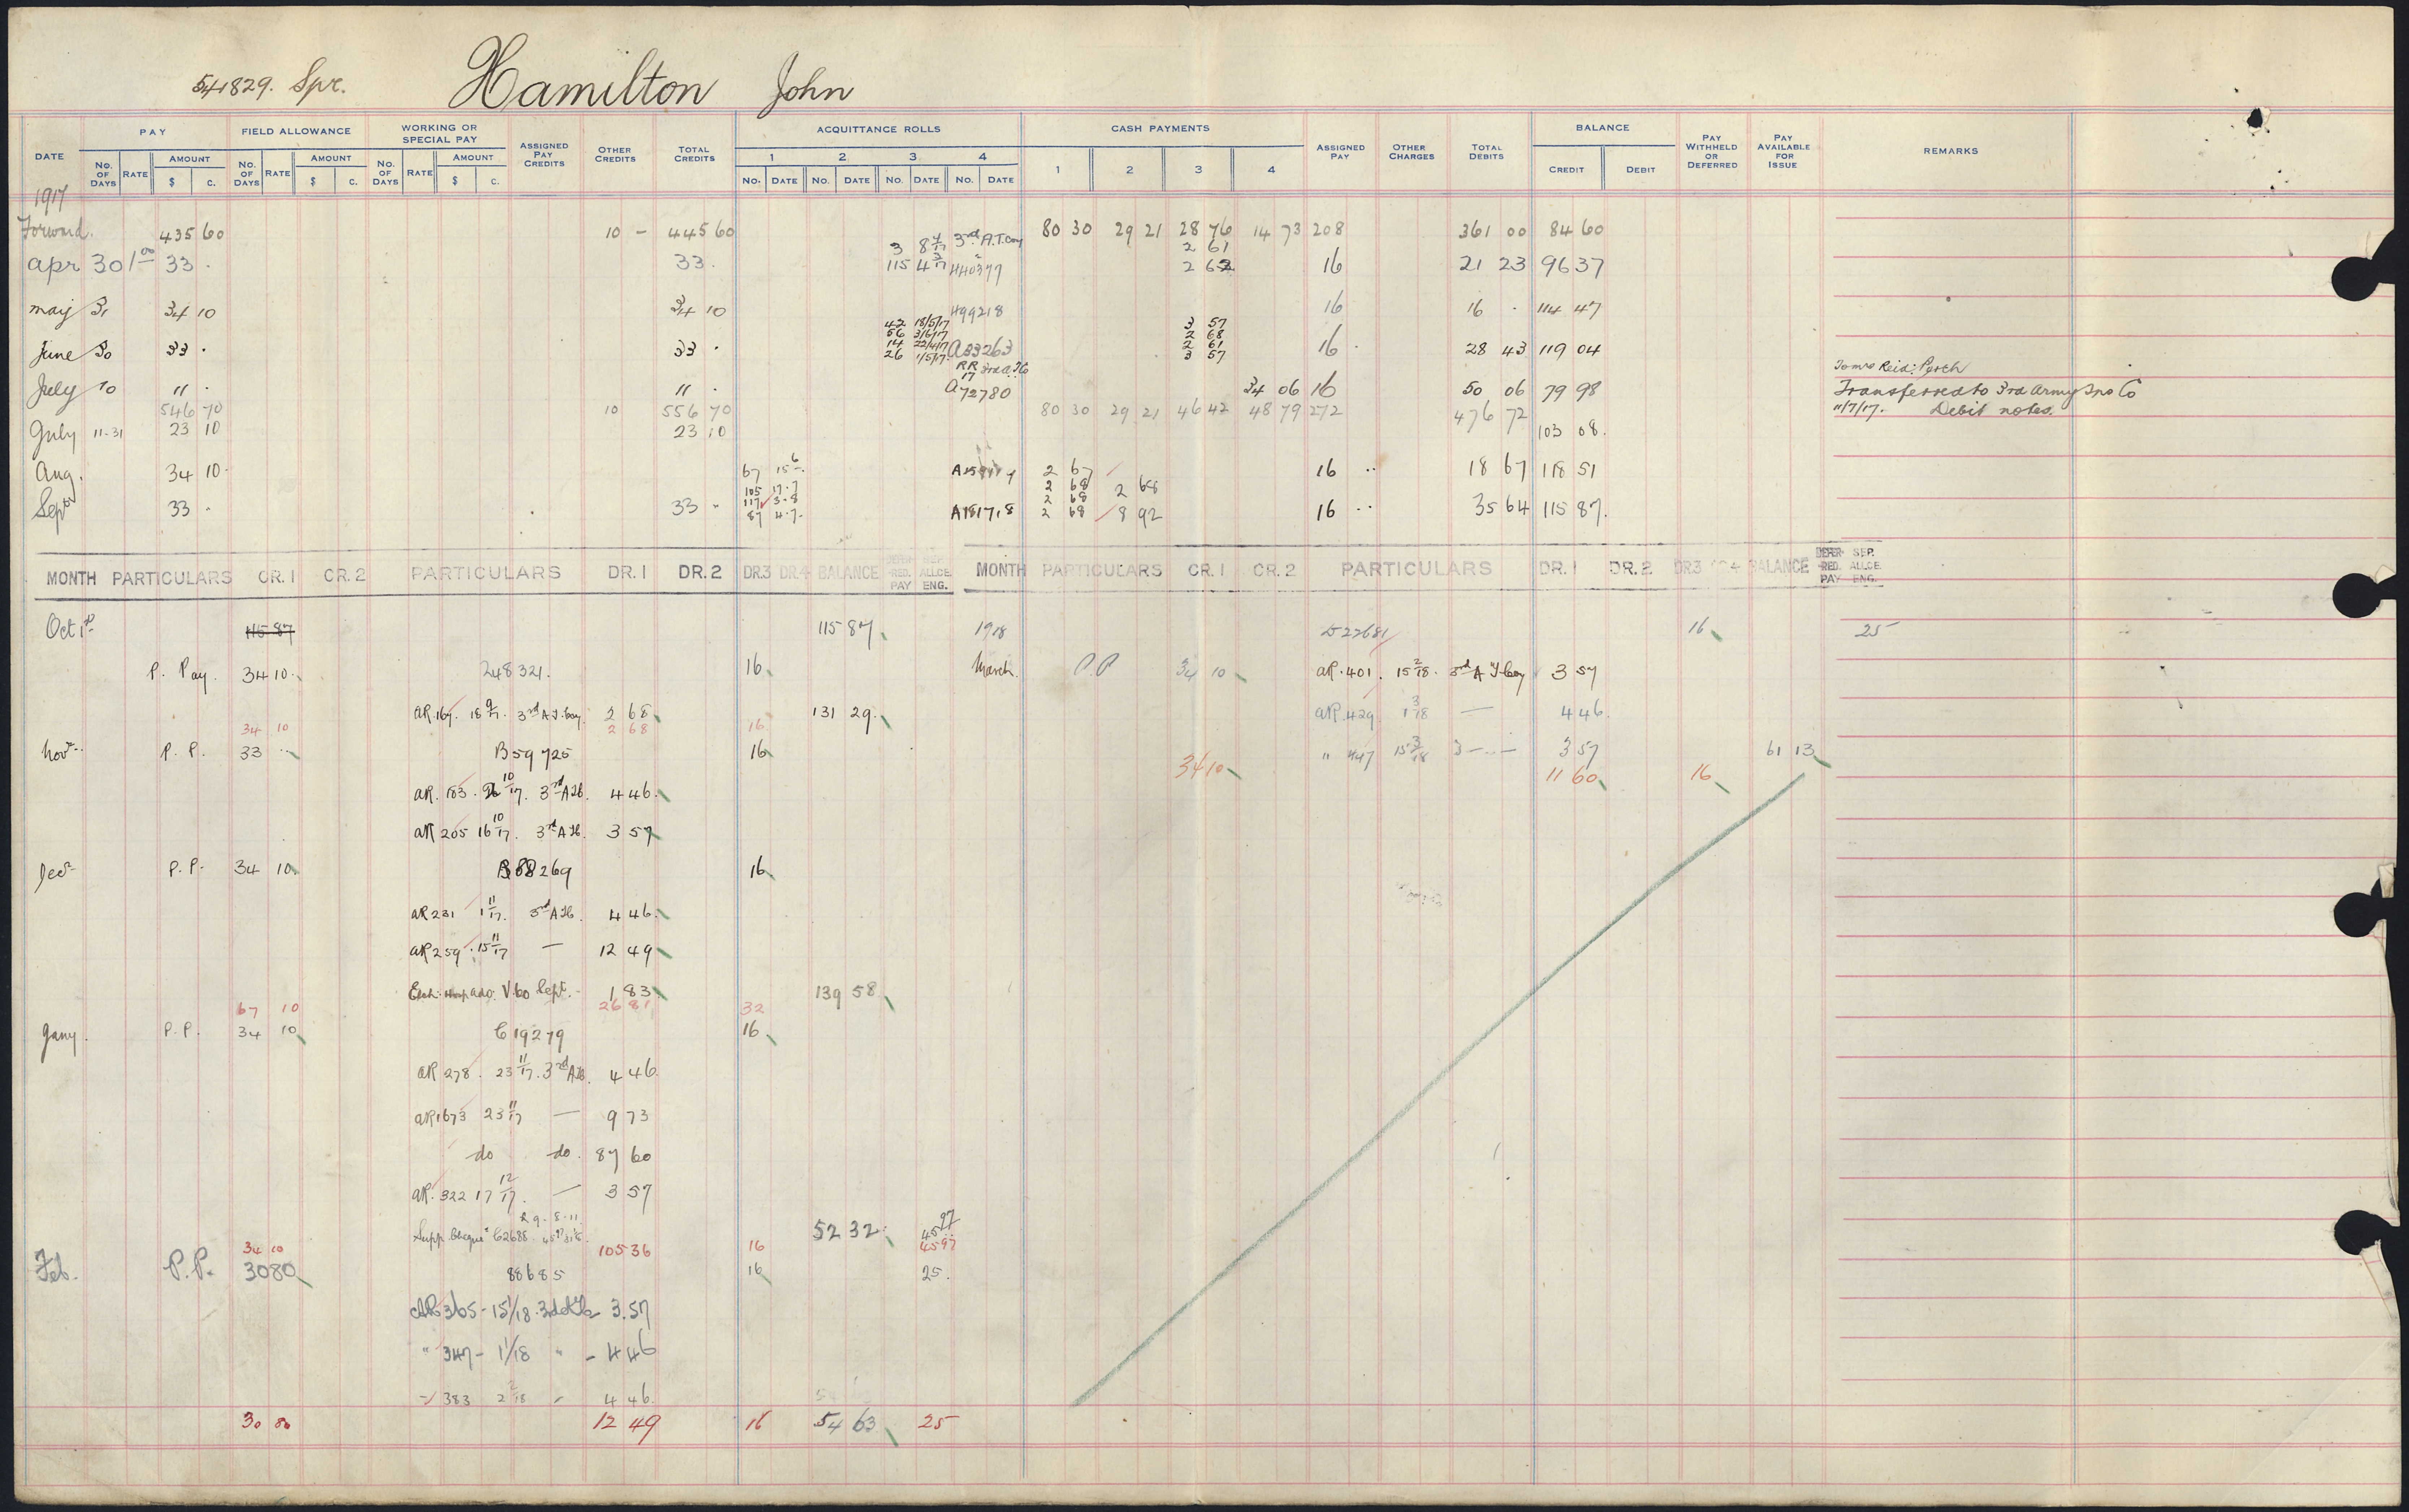 541829. Spr. Hamilton John
DATE PAY FIELD ALLOWANCE WORKING OR SPECIAL PAY ASSIGNED PAY CREDITS OTHER CREDITS TOTAL CREDITS ACQUITTANCE ROLLS CASH PAYMENTS ASSIGNED PAY OTHER CHARGES TOTAL DEBITS BALANCE PAY WITHHELD OR DEFERRED PAY AVAILABLE FOR ISSUE REMARKS
NO. OF DAYS RATE AMOUNT $ C. NO. OF DAYS RATE AMOUNT $ C. NO. OF DAYS RATE AMOUNT $ C. 1 2 3 4 1 2 3 4 CREDIT DEBIT
NO. DATE NO. DATE NO. DATE NO. DATE
1917
Forward. 435 60 10 - 445 60 80 30 29 21 28 76 14 73 208 361 00 84 60
3 8 4/17 3rd A.T. Coy 2 61
Apr 30 1 00 33 . 33 . 115 4 3/17 440377 2 62 16 21 23 96 37
May 31 34 10 34 10 499218 16 16 . 114 47
42 18/5/17 3 57
56 3/6/17 2 68
14 22/4/17 2 61
June 30 33 . 33 . 26 1/5/17 A33263 3 57 16 . 28 43 119 04
RR 17
July 10 11 . 11 . A72780 34 06 16 50 06 79 98 Transferred to 3rd Army Tps Co
546 70 10 556 70 80 30 29 21 46 42 48 79 272 476 72 11/7/17. Debit notes.
July 11-31 23 10 23 10 103 08.
Aug. 34 10. 67 15 6 2 67 16 18 67 118 51
105 17.7 2 68 2 68
117 3.8 2 68
Sept 33 . 33 . 87 4.7. A181718 2 68 8 92 16 35 64 115 87.
MONTH PARTICULARS CR. 1 CR. 2 PARTICULARS DR. 1 DR. 2 DR. 3 DR. 4 BALANCE DEFER-RED. PAY SEP. ALLCE. ENG. MONTH PARTICULARS CR. 1 CR. 2 PARTICULARS DR. 1 DR. 2 DR. 3 DR. 4 BALANCE DEFER-RED. PAY SEP. ALLCE. ENG.
Oct 1st 115 87 115 87 1918 D22681 16 25
P. Pay. 34 10. 248321. 16 March. P.P 34 10 AR. 401. 15 2/18. 3rd A T. Coy 3 57
AR. 167. 18 9/17. 3rd A.T. Coy. 2 68 131 29. AR. 429 1 3/18 — 4 46.
34 10 2 68 16
Novr P.P. 33 B59725 16 " 447 15 3/18 3 — 3 57 61 13
34 10 11 60 16
AR. 183. 26 10/17. 3rd A Tb. 4 46.
AR 205 16 10/17. 3rd A Tb. 3 57
Decr P.P. 34 10 B88269 16
AR 231 1 11/17. 3rd A Tb. 4 46.
AR 259. 15 11/17 — 12 49
Sept. 1 83 139 58
67 10 26 81 32
Jany. P.P. 34 10 C19279 16
AR 278. 23 11/17. 3rd A Tb. 4 46
AR 1673 23 11/17 — 9 73
do do. 87 60
AR. 322 17 12/17. — 3 57
£9-8-11
Supp. Cheque C2688 52 32 45 97
34 10 105 36 16 45 97
Feb. P.P. 30 80 88685 16 25.
AR 365 - 15/1/18. 3.57
" 347 - 1/1/18 " - 4 46
383 2 2/18 4 46.
30 80 12 49 16 54 63 25